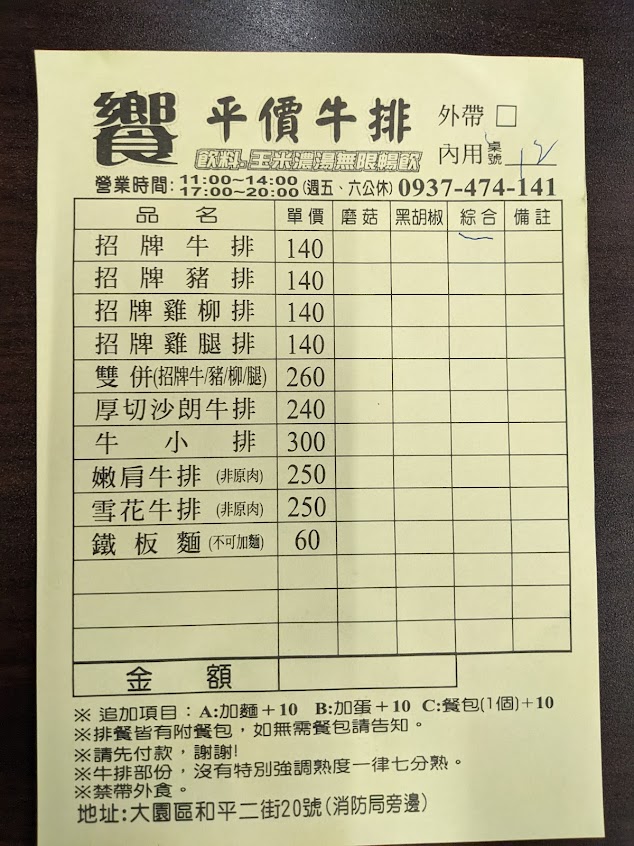 饗 平價牛排 外帶 □
飲料、玉米濃湯無限暢飲 內用 桌號 12
營業時間: 11:00~14:00 17:00~20:00 (週五、六公休) 0937-474-141
品名 單價 磨菇 黑胡椒 綜合 備註
招牌牛排 140
招牌豬排 140
招牌雞柳排 140
招牌雞腿排 140
雙併(招牌牛/豬/柳/腿) 260
厚切沙朗牛排 240
牛小排 300
嫩肩牛排 (非原肉) 250
雪花牛排 (非原肉) 250
鐵板麵 (不可加麵) 60
金額
※ 追加項目：A:加麵＋10 B:加蛋＋10 C:餐包(1個)＋10
※排餐皆有附餐包，如無需餐包請告知。
※請先付款，謝謝!
※牛排部份，沒有特別強調熟度一律七分熟。
※禁帶外食。
地址:大園區和平二街20號(消防局旁邊)